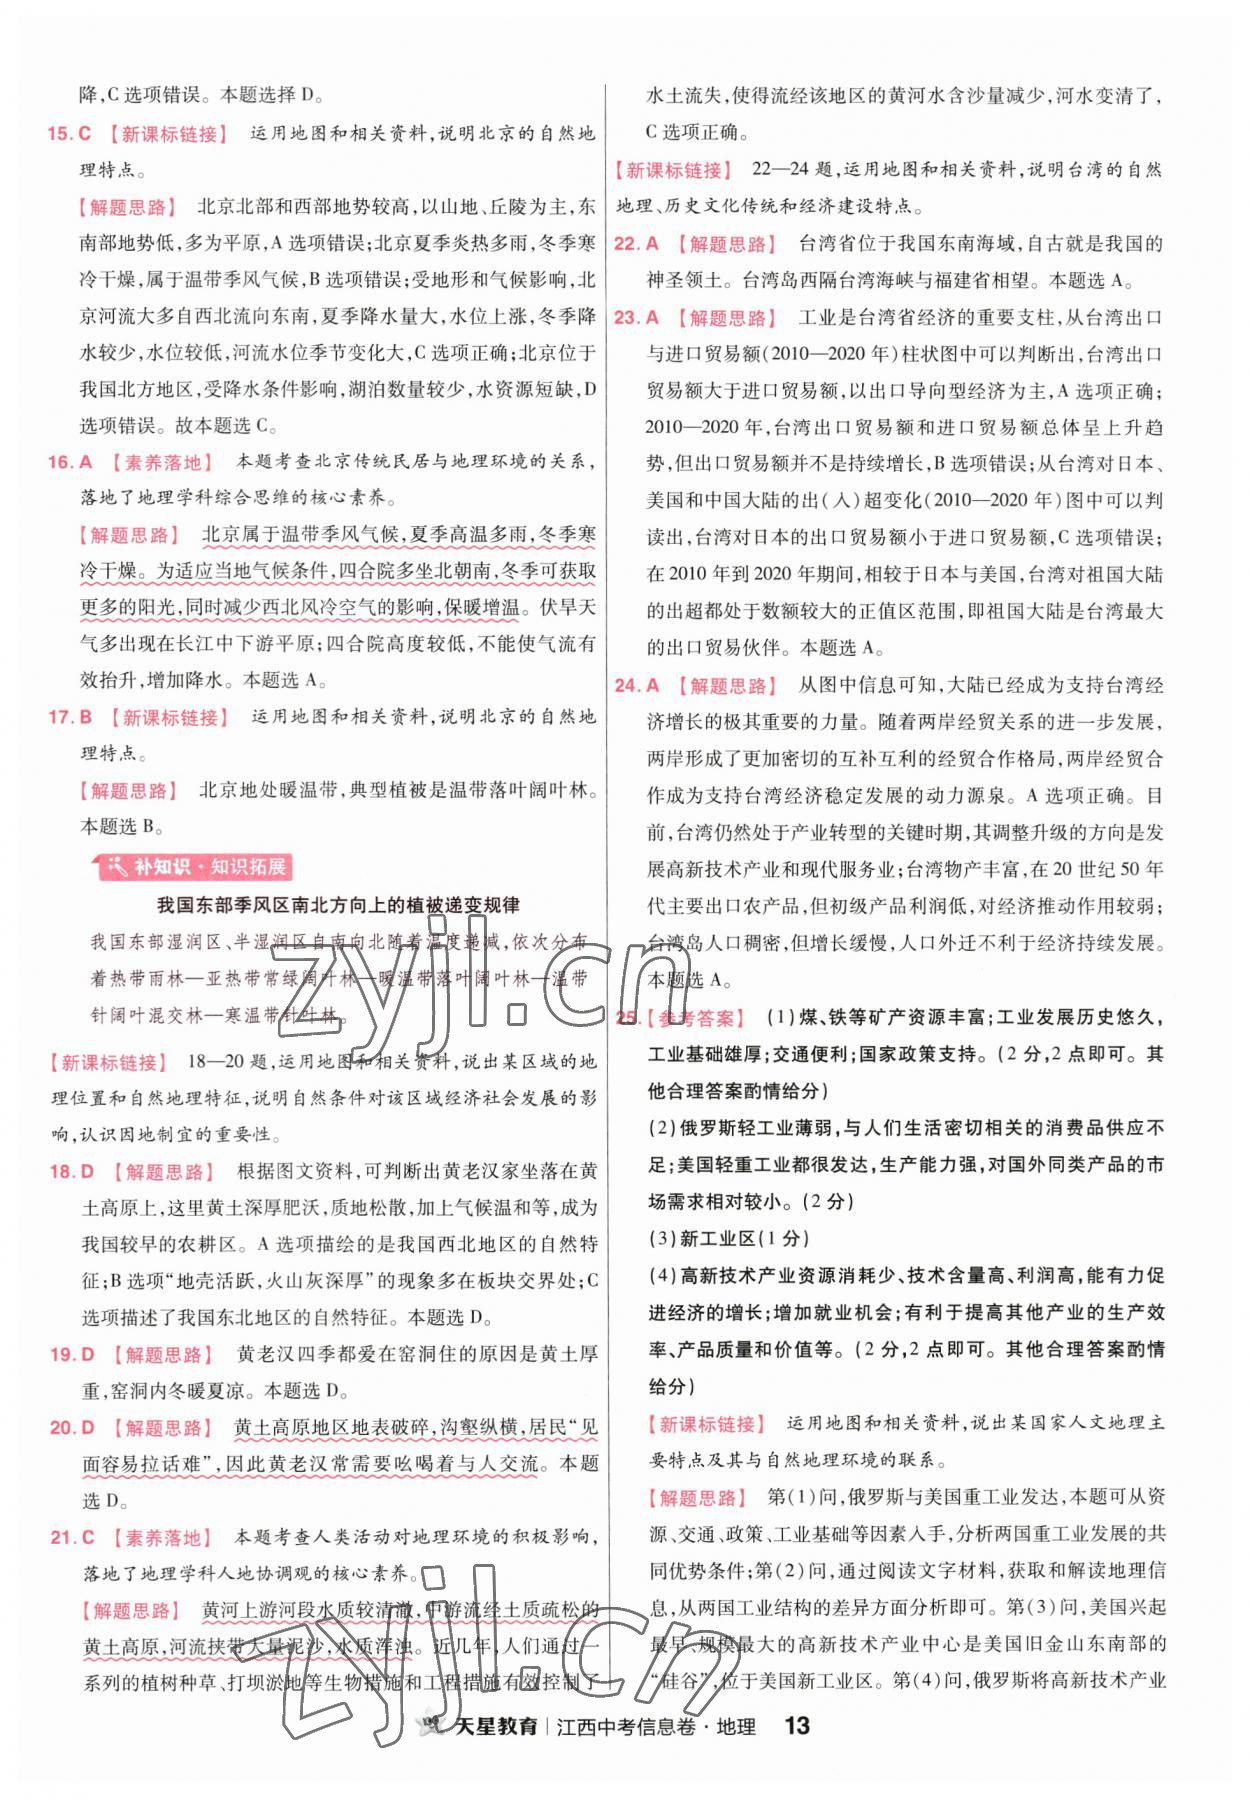 降,C 选项错误。本题选择 D。
15. C 【新课标链接】 运用地图和相关资料,说明北京的自然地
理特点。
【解题思路】 北京北部和西部地势较高,以山地、丘陵为主,东
南部地势低,多为平原,A 选项错误;北京夏季炎热多雨,冬季寒
冷干燥,属于温带季风气候,B 选项错误;受地形和气候影响,北
京河流大多自西北流向东南,夏季降水量大,水位上涨,冬季降
水较少,水位较低,河流水位季节变化大,C 选项正确;北京位于
我国北方地区,受降水条件影响,湖泊数量较少,水资源短缺,D
选项错误。故本题选 C。
16. A 【素养落地】 本题考查北京传统民居与地理环境的关系,
落地了地理学科综合思维的核心素养。
【解题思路】 北京属于温带季风气候,夏季高温多雨,冬季寒
冷干燥。为适应当地气候条件,四合院多坐北朝南,冬季可获取
更多的阳光,同时减少西北风冷空气的影响,保暖增温。伏旱天
气多出现在长江中下游平原;四合院高度较低,不能使气流有
效抬升,增加降水。本题选 A。
17. B 【新课标链接】 运用地图和相关资料,说明北京的自然地
理特点。
【解题思路】 北京地处暖温带,典型植被是温带落叶阔叶林。
本题选 B。
补知识·知识拓展
我国东部季风区南北方向上的植被递变规律
我国东部湿润区、半湿润区自南向北随着温度递减,依次分布
着热带雨林—亚热带常绿阔叶林—暖温带落叶阔叶林—温带
针阔叶混交林—寒温带针叶林。
【新课标链接】 18—20 题,运用地图和相关资料,说出某区域的地
理位置和自然地理特征,说明自然条件对该区域经济社会发展的影
响,认识因地制宜的重要性。
18. D 【解题思路】 根据图文资料,可判断出黄老汉家坐落在黄
土高原上,这里黄土深厚肥沃,质地松散,加上气候温和等,成为
我国较早的农耕区。A 选项描绘的是我国西北地区的自然特
征;B 选项“地壳活跃,火山灰深厚”的现象多在板块交界处;C
选项描述了我国东北地区的自然特征。本题选 D。
19. D 【解题思路】 黄老汉四季都爱在窑洞住的原因是黄土厚
重,窑洞内冬暖夏凉。本题选 D。
20. D 【解题思路】 黄土高原地区地表破碎,沟壑纵横,居民“见
面容易拉话难”,因此黄老汉常需要吆喝着与人交流。本题
选 D。
21. C 【素养落地】 本题考查人类活动对地理环境的积极影响,
落地了地理学科人地协调观的核心素养。
【解题思路】 黄河上游河段水质较清澈,中游流经土质疏松的
黄土高原,河流挟带大量泥沙,水质浑浊。近几年,人们通过一
系列的植树种草、打坝淤地等生物措施和工程措施有效控制了
水土流失,使得流经该地区的黄河水含沙量减少,河水变清了,
C 选项正确。
【新课标链接】 22—24 题,运用地图和相关资料,说明台湾的自然
地理、历史文化传统和经济建设特点。
22. A 【解题思路】 台湾省位于我国东南海域,自古就是我国的
神圣领土。台湾岛西隔台湾海峡与福建省相望。本题选 A。
23. A 【解题思路】 工业是台湾省经济的重要支柱,从台湾出口
与进口贸易额(2010—2020 年)柱状图中可以判断出,台湾出口
贸易额大于进口贸易额,以出口导向型经济为主,A 选项正确;
2010—2020 年,台湾出口贸易额和进口贸易额总体呈上升趋
势,但出口贸易额并不是持续增长,B 选项错误;从台湾对日本、
美国和中国大陆的出(入)超变化(2010—2020 年)图中可以判
读出,台湾对日本的出口贸易额小于进口贸易额,C 选项错误;
在 2010 年到 2020 年期间,相较于日本与美国,台湾对祖国大陆
的出超都处于数额较大的正值区范围,即祖国大陆是台湾最大
的出口贸易伙伴。本题选 A。
24. A 【解题思路】 从图中信息可知,大陆已经成为支持台湾经
济增长的极其重要的力量。随着两岸经贸关系的进一步发展,
两岸形成了更加密切的互补互利的经贸合作格局,两岸经贸合
作成为支持台湾经济稳定发展的动力源泉。A 选项正确。目
前,台湾仍然处于产业转型的关键时期,其调整升级的方向是发
展高新技术产业和现代服务业;台湾物产丰富,在 20 世纪 50 年
代主要出口农产品,但初级产品利润低,对经济推动作用较弱;
台湾岛人口稠密,但增长缓慢,人口外迁不利于经济持续发展。
本题选 A。
25. 【参考答案】 (1)煤、铁等矿产资源丰富;工业发展历史悠久,
工业基础雄厚;交通便利;国家政策支持。(2 分,2 点即可。其
他合理答案酌情给分)
(2)俄罗斯轻工业薄弱,与人们生活密切相关的消费品供应不
足;美国轻重工业都很发达,生产能力强,对国外同类产品的市
场需求相对较小。(2 分)
(3)新工业区(1 分)
(4)高新技术产业资源消耗少、技术含量高、利润高,能有力促
进经济的增长;增加就业机会;有利于提高其他产业的生产效
率、产品质量和价值等。(2 分,2 点即可。其他合理答案酌情
给分)
【新课标链接】 运用地图和相关资料,说出某国家人文地理主
要特点及其与自然地理环境的联系。
【解题思路】 第(1)问,俄罗斯与美国重工业发达,本题可从资
源、交通、政策、工业基础等因素入手,分析两国重工业发展的共
同优势条件;第(2)问,通过阅读文字材料,获取和解读地理信
息,从两国工业结构的差异方面分析即可。第(3)问,美国兴起
最早、规模最大的高新技术产业中心是美国旧金山东南部的
“硅谷”,位于美国新工业区。第(4)问,俄罗斯将高新技术产业
天星教育 | 江西中考信息卷·地理 13
zyjl.cn
zyjl.cn